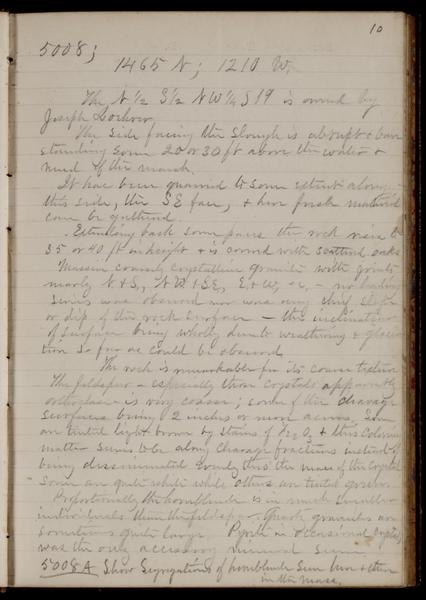 10
5008;
1465 N; 1210 W.
The N 1/2 S 1/2 NW 1/4 S 19 is owned by
Joseph
The side facing the slough is abrupt & bare
standing some 20 or 30 ft above the water &
mud of the marsh.
It has been quarried to some extent along
this side, the SE face, & here fresh material
can be gathered.
Extending back some paces the rock rises to
35 or 40 ft in height & is covered with scattered oaks
Massive coarsely crystalline granite with joints
nearly N & S, NW & SE, E & W, - no
series was observed nor was any
or dip of this rock surface - the inclination
of surface being wholly due to weathering & glacia-
tion so far as could be observed.
The rock is remarkable for its coarse texture
The feldspar - especially those crystals apparently
orthoclase - is very coarse; some of the cleavage
surfaces being 2 inches or more across. Some
are tinted light brown by stains of Fe2O3 & this coloring
matter seems to be along cleavage fractures instead of
being disseminated evenly thro' the mass of the crystal
Some are quite white while others are tinted green.
Proportionally the hornblende is in much smaller
individuals than the feldspar. Quartz granules are
sometimes quite large. Pyrite in occasional
was the only accessory mineral seen.
5008A Show segregations of hornblende seen here & there
in the mass.